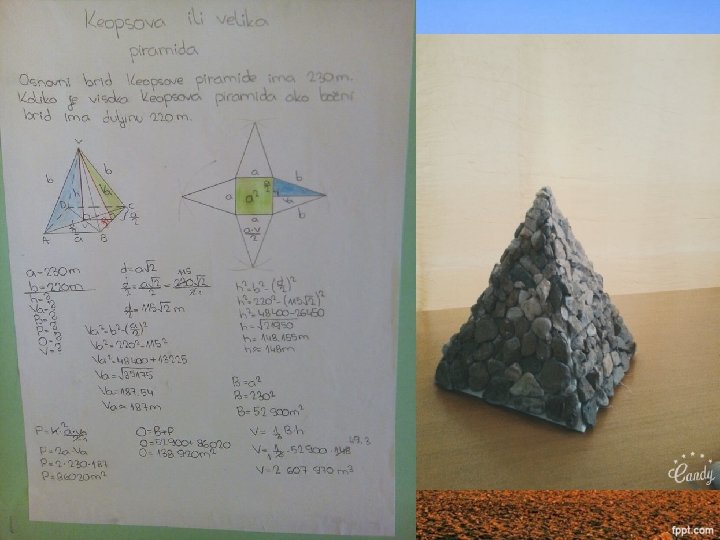 Keopsova ili velika
piramida
Osnovni brid Keopsove piramide ima 230m.
Koliko je visoka Keopsova piramida ako bočni
brid ima duljinu 220m.
V
b
b
h
D
C
A
a
B
a
b
a
a²
b
a
a·v
2
a=230m
b=220m
h=?
O=?
V=?
d=a√2
d/2 = a√2/2 = 230√2/2
115
d/2 = 115√2 m
Va²=b²-(a/2)²
Va²=220²-115²
Va²=48400+13225
Va=√35175
Va=187.54
Va≈187m
h²=b²-(d/2)²
h²=220²-(115√2)²
h²=48400-26450
h=√21950
h=148.155m
h≈148m
B=a²
B=230²
B=52 900m²
P=2a·Va
P=2·230·187
P=86020m²
O=B+P
O=52900+86020
O=138.920m²
V=1/3 B·h
V=1/3·52 900·148
49.3
V=2 607 970m³
Candy
fppt.com